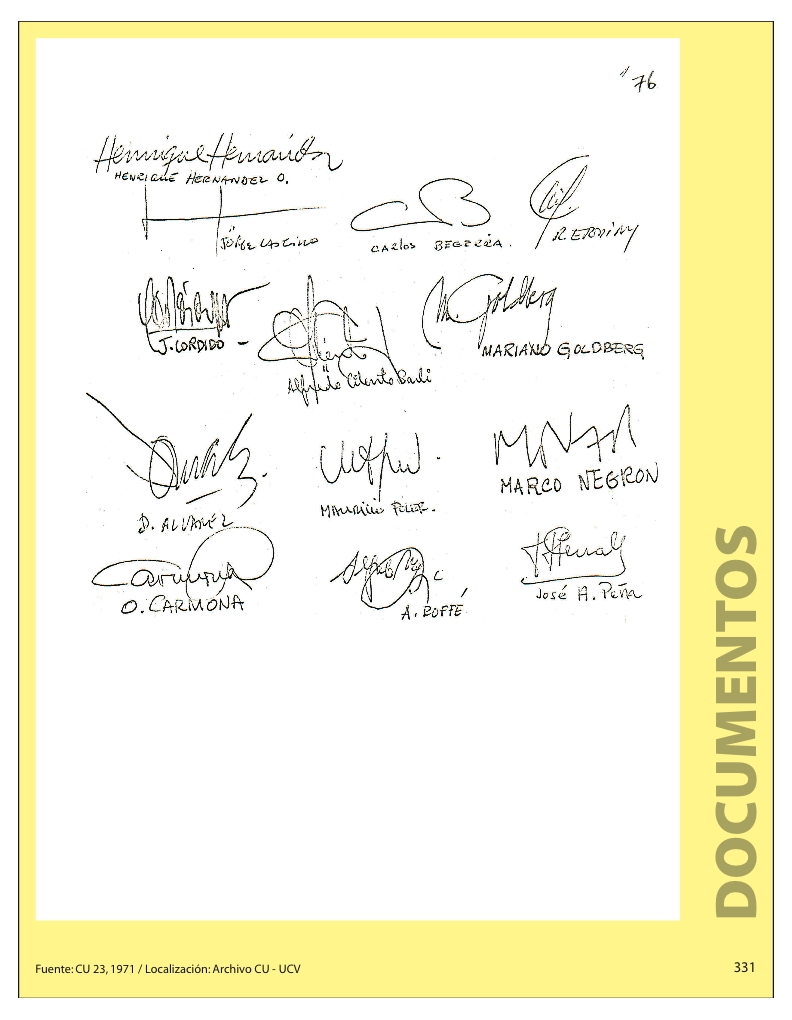 " 76
Henrique Hernández
HENRIQUE HERNANDEZ O.
JORGE CASTILLO
CARLOS BECERRA.
R. ERMINY
J. CORDIDO -
Alfredo Cilento Sarli
M. Goldberg
MARIANO GOLDBERG
D. ALVAREZ
MAURICIO POLER.
MARCO NEGRON
Carmona
O. CARMONA
A. ROFFÉ
José A. Peña
DOCUMENTOS
Fuente: CU 23, 1971 / Localización: Archivo CU - UCV
331